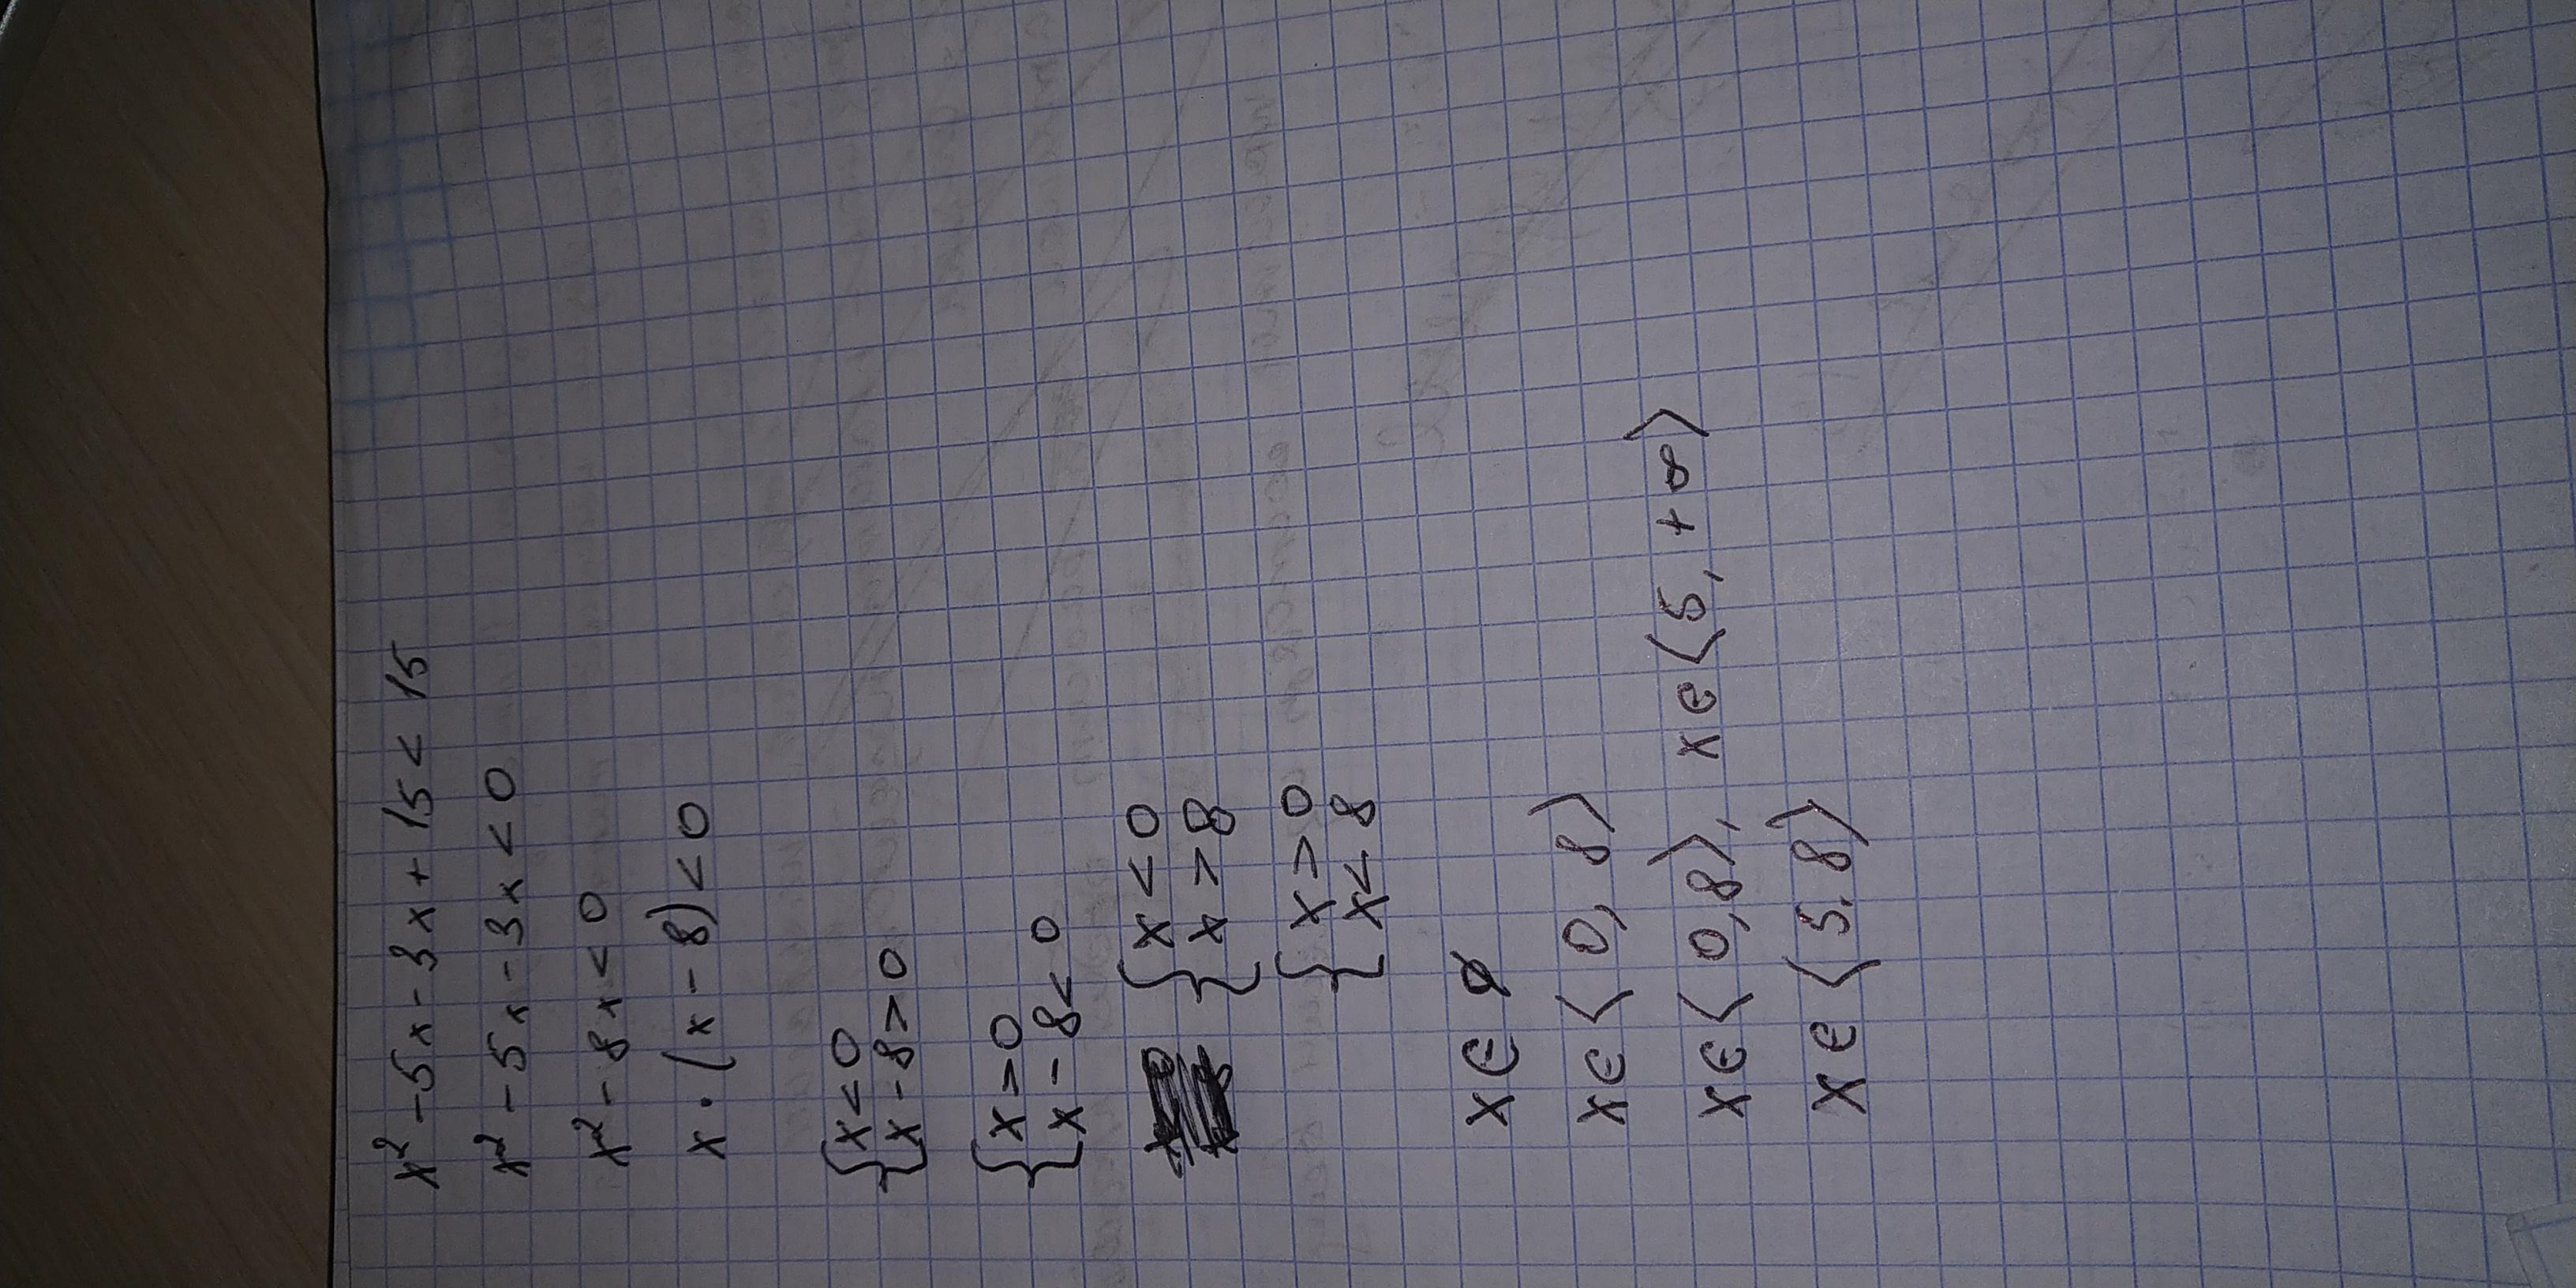 x² - 5x - 3x + 15 < 15
x² - 5x - 3x < 0
x² - 8x < 0
x · (x - 8) < 0
{ x < 0
{ x - 8 > 0
{ x > 0
{ x - 8 < 0
{ x < 0
{ x > 8
{ x > 0
{ x < 8
x ∈ ∅
x ∈ ⟨0, 8⟩
x ∈ ⟨0, 8⟩, x ∈ ⟨5, +∞⟩
x ∈ ⟨5, 8⟩